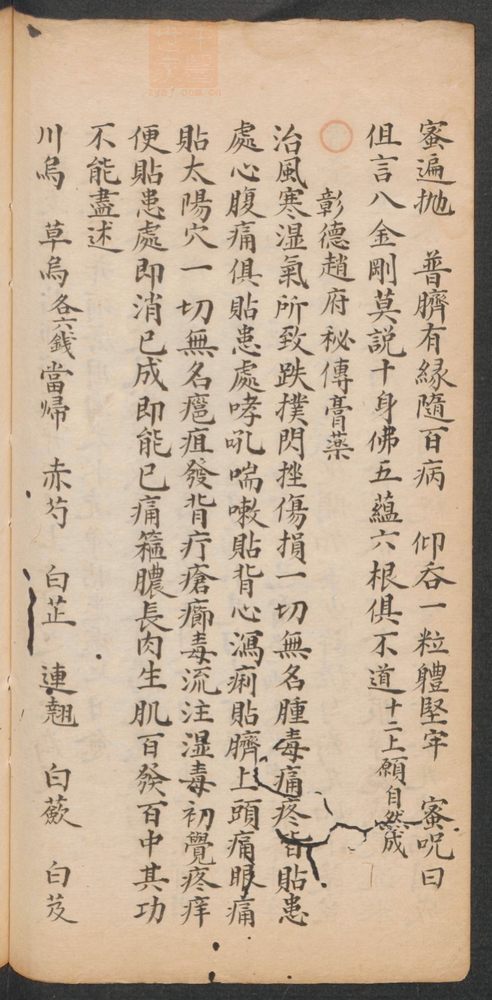 蜜遍抛　普臍有緣隨百病　仰吞一粒軆堅牢　蜜呪曰
但言八金剛莫説十身佛五蘊六根俱不道十二上願自然成
彰德趙府秘傳膏藥
治風寒湿氣所致跌撲閃挫傷損一切無名腫毒痛疼皆貼患
處心腹痛俱貼患處哮吼喘嗽貼背心瀉痢貼臍上頭痛眼痛
貼太陽穴一切無名癰疽發背疔瘡癤毒流注湿毒初覺疼痒
便貼患處即消已成即能已痛箍膿長肉生肌百發百中其功
不能盡述
川烏　草烏各六錢當歸　赤芍　白芷　連翹　白蘞　白芨